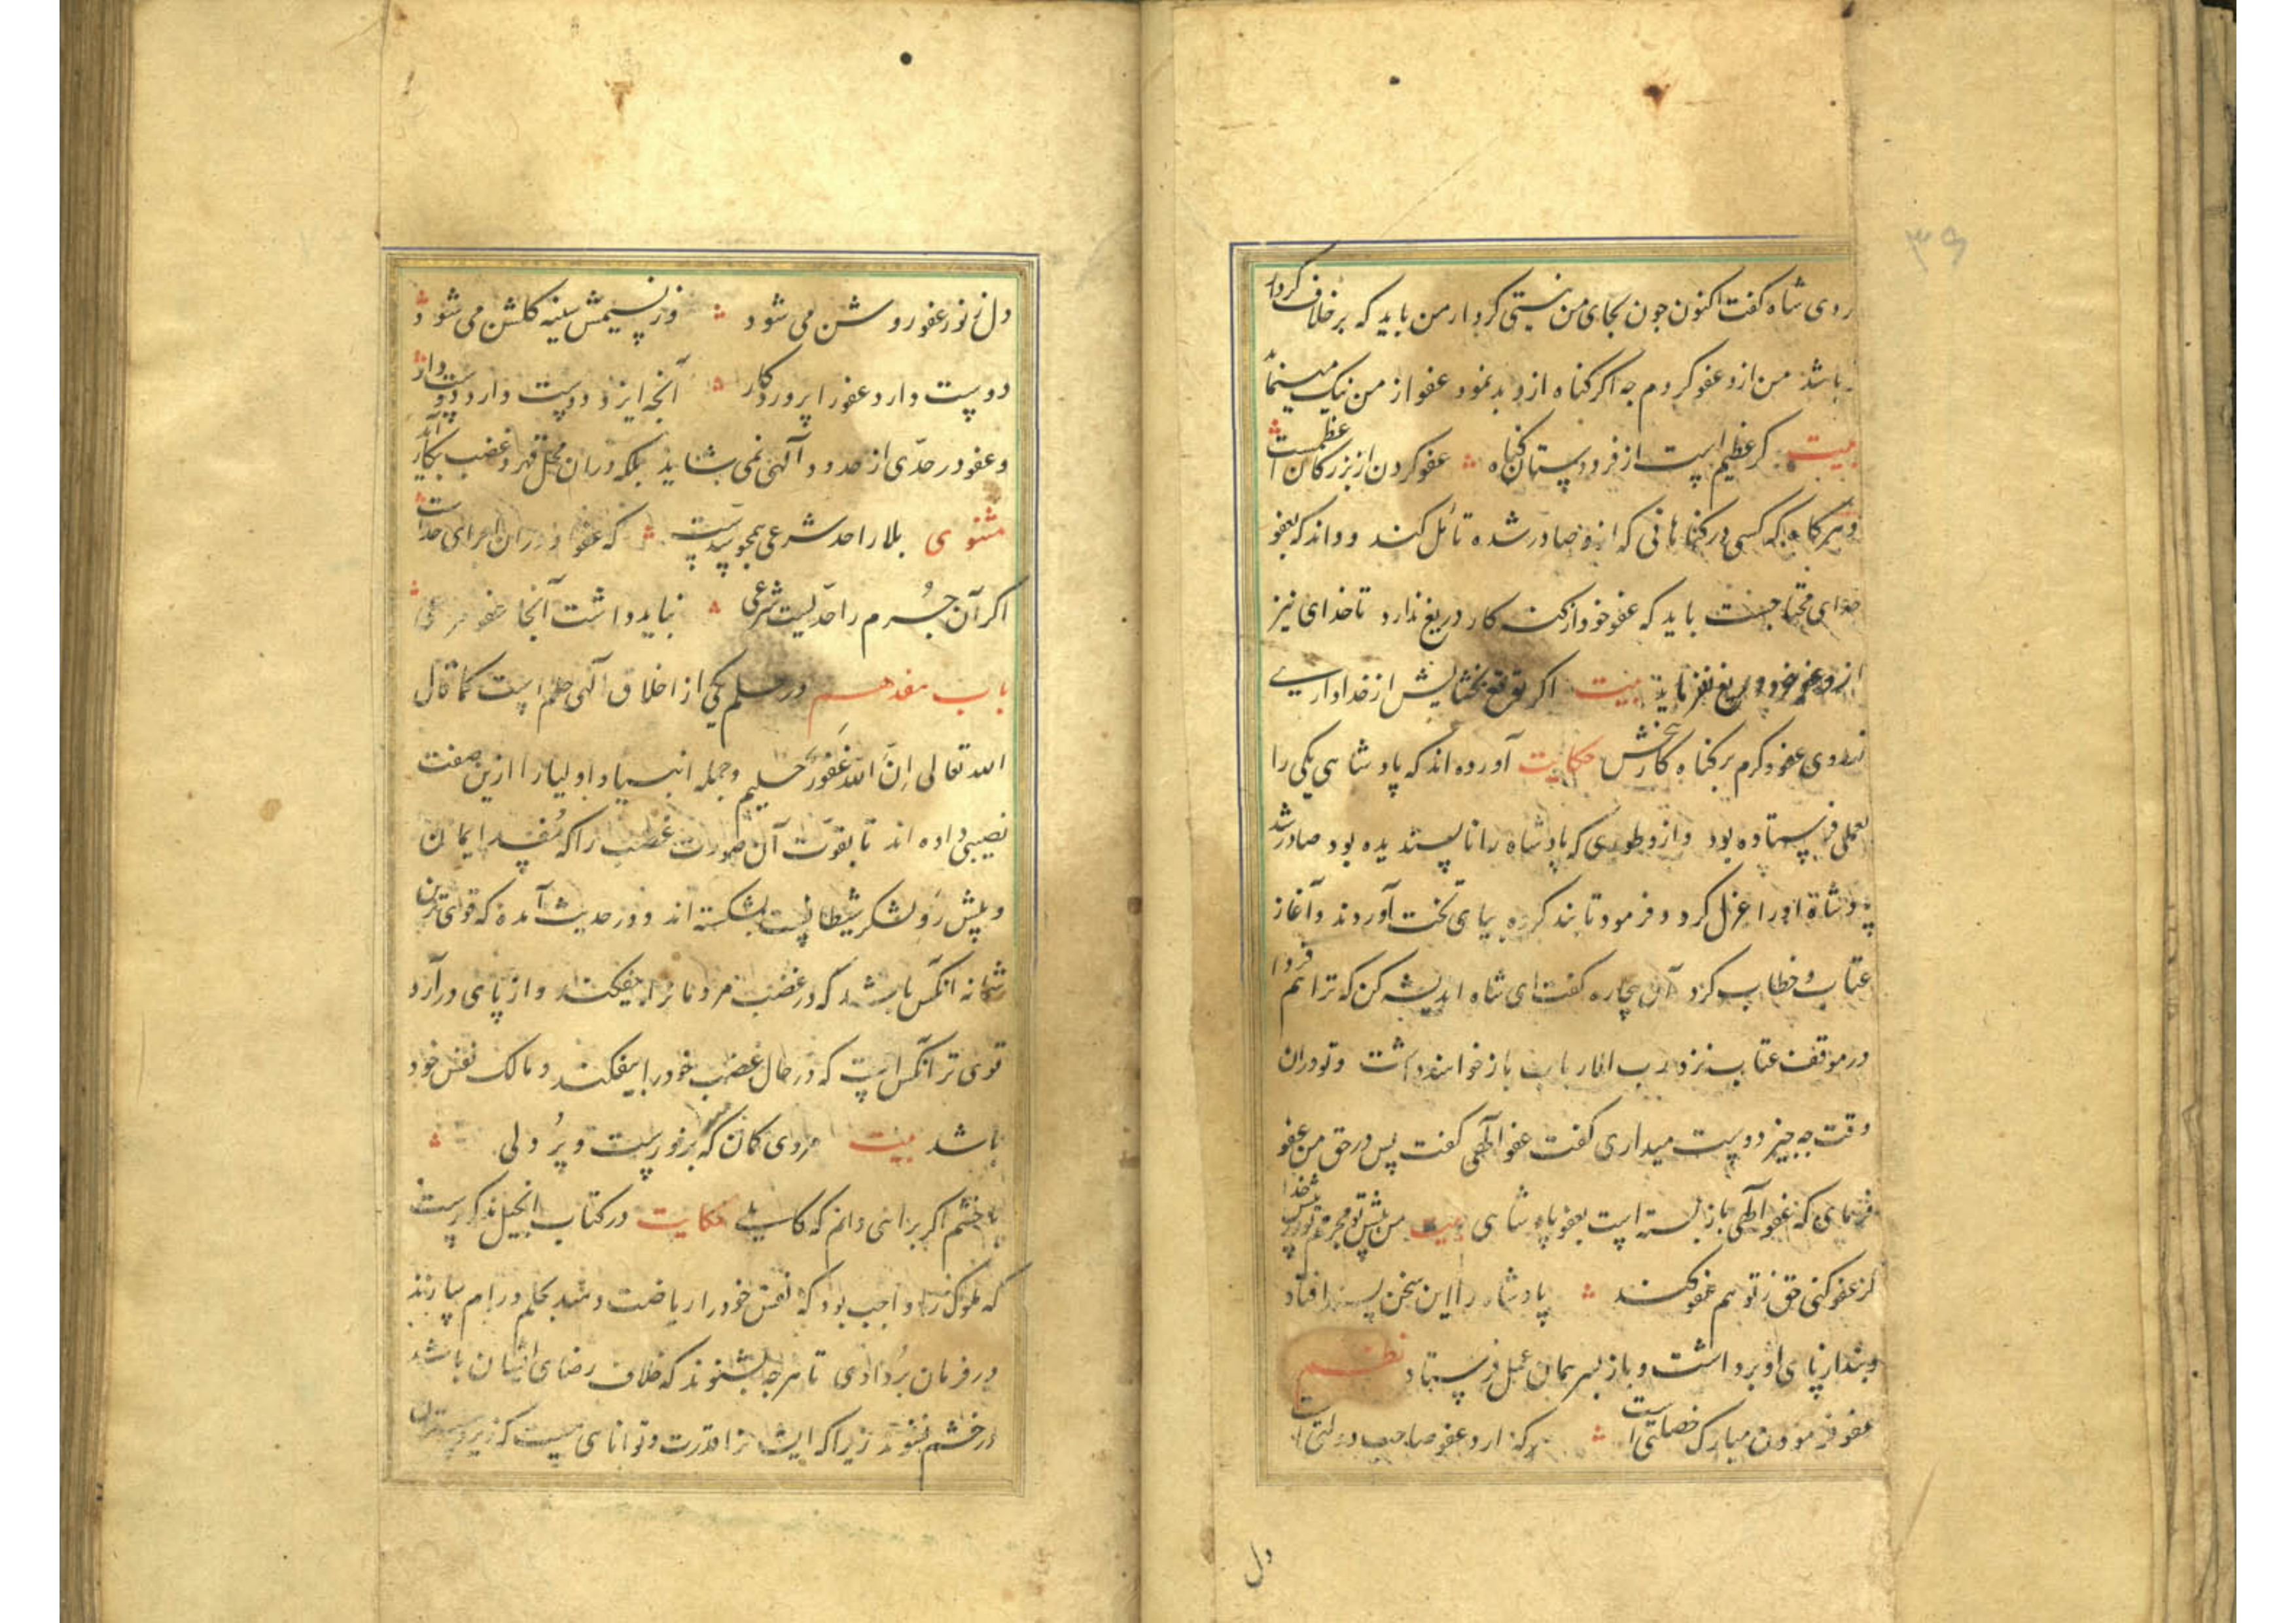 ۳۹
روی شاه کفت اکنون جون بجای من نیستی کردار من باید که بر خلاف کردار
باشد من ازو عفو کردم جه اکر کناه ازو بد نمود عفو از من نیک مینماید
بیت کر عظیم است از فرودستان کناه عفو کردن از بزرکان اعظمست
و هرکاه که کسی در کناهانی که ازو صادر شده تأمل کند و داند که بعفو
خدای محتاجست باید که عفو خود از کنه کار دریغ ندارد تا خدای نیز
ازو عفو خود دریغ نفرماید بیت اکر توقع بخشایش از خدا داری
ز روی عفو و کرم بر کناه کار ببخش حکایت آورده اند که پادشاهی یکی را
بعملی فرستاده بود و ازو طوری که پادشاه را ناپسندیده بود صادر شد
پادشاه او را عزل کرد و فرمود تا بند کرده بپای تخت آوردند و آغاز
عتاب و خطاب کرد آن بیچاره کفت ای شاه اندیشه کن که ترا هم فردا
در موقف عتاب نزد رب الارباب باز خواهند داشت و تو دران
وقت جه جیز دوست میداری کفت عفو الٓهی کفت پس در حق من عفو
فرمای که عفو الٓهی باز بسته است بعفو پادشاهی بیت من پیش تو مجرمم تو در پیش خدا
کر عفو کنی حق ز تو هم عفو کند پادشاه را این سخن پسند افتاد
و بند از پای او برداشت و باز بسر همان عمل فرستاد نظم
عفو فرمودن مبارک خصلتی است هرکه دارد عفو صاحب دولتی است
دل
دل ز نور عفو روشن می شود وز نسیمش سینه کلشن می شود
دوست دارد عفو را پروردکار آنجه ایزد دوست دارد دوست دار
و عفو در حدّی از حدود آلهی نمی شاید بلکه دران محل قهر و غضب بکار آید
مثنوی بلا را حد شرعی همجو سدّیست که عفو دران اجرای حد است
اکر آن جُرم را حدّیست شرعی نباید داشت آنجا عفو مرعی
باب هفدهم در حلم یکی از اخلاق آلهی حلم است کما قال
الله تعالی اِنَّ اللّهَ غَفُورٌ حلیم و جمله انبیا و اولیا را ازین صفت
نصیبی داده اند تا بقوّت آن صورت غضب را که مُفسد ایمان
و پیش رَو لشکر شیطانست بشکسته اند و در حدیث آمده که قوی ترین
شما نه انکس باشد که در غضب مردمانرا بیفکند و از پای درآرد
قوی تر آنکس است که در حال غضب خود را بیفکند و مالک نفس خود
باشد بیت مردی کمان که بزورست و پُر دلی
با خشم اکر برائی دانم که کاملی حکایت در کتاب انجیل مذکورست
که ملوک را واجب بود که نفس خود را ریاضت دهند بحلم و رام سازند
در فرمان بُردادی تا هرجه بشنوند که خلاف رضای ایشان باشد
در خشم نشوند زیراکه ایشانرا قدرت و توانائی هست که زیردستان